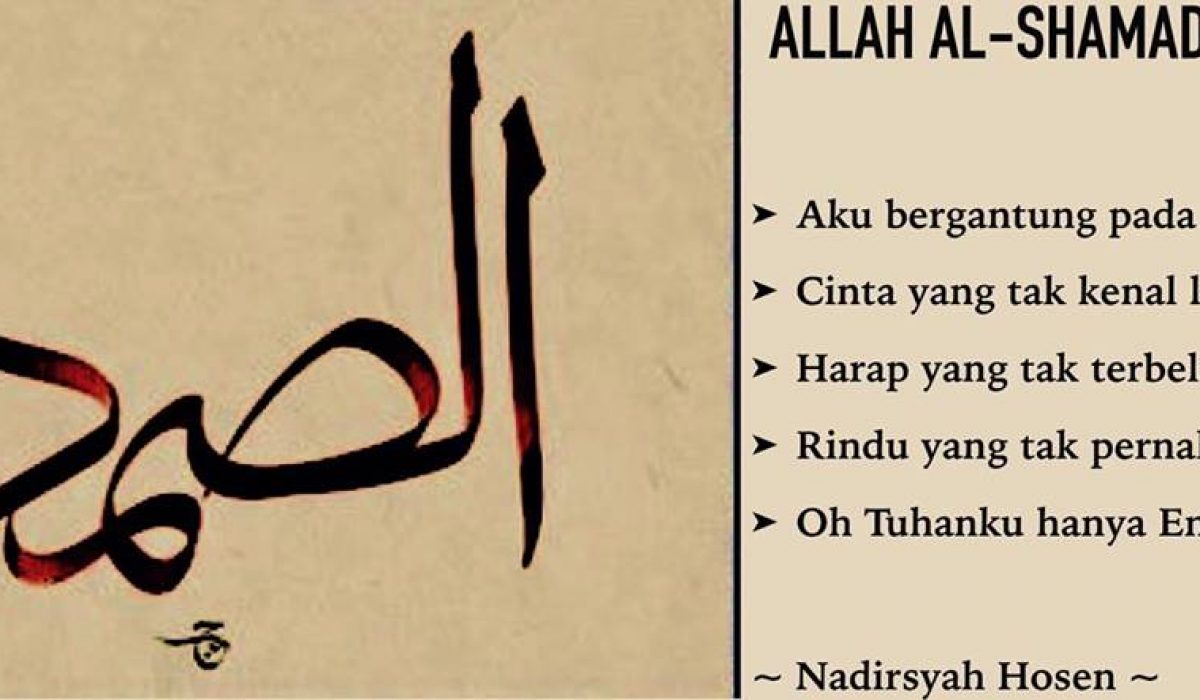 الصمد
ALLAH AL-SHAMAD
➤ Aku bergantung pada
➤ Cinta yang tak kenal l
➤ Harap yang tak terbel
➤ Rindu yang tak pernah
➤ Oh Tuhanku hanya En
~ Nadirsyah Hosen ~